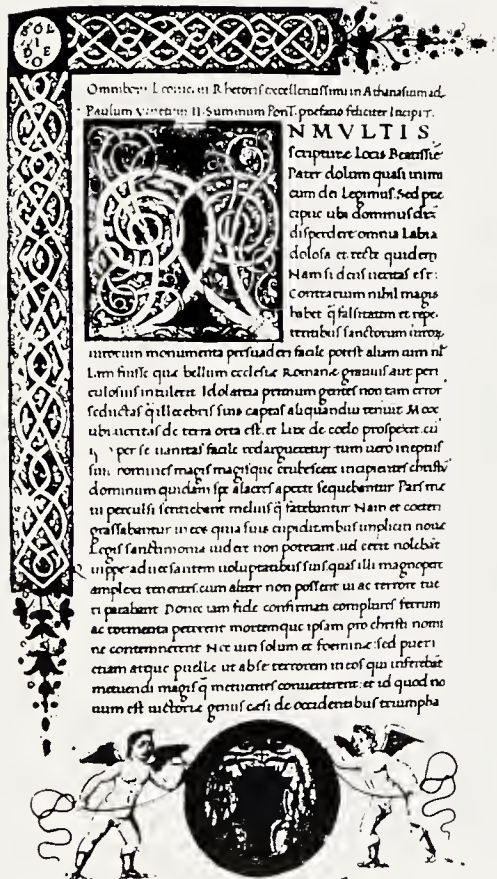 SOL
Omniboni Leonic. in Rhetoris excellentissimi in Athanasium ad
Paulum II. Summum Pont. praefatio feliciter Incipit.
N MVLTIS
scripturae Locis Beatissie
Pater dolum quasi inimi
cum dei Legimus. Sed prae
cipue ubi dominus
disperdere omnia Labia
dolosa et recte quidem
Nam si deus ueritas est:
Contrarium nihil magis
habet q̄ falsitatem et repe
tentibus sanctorum
monumenta persuaderi facile potest alium
fuisse que bellum ecclesiae Romanae grauius aut peri
culosius intulerit Idolatria primum gentes non tam error
seductas q̄ illecebris suis captas aliquandiu tenuit Mox
ubi ueritas de terra orta est. et Lux de coelo prospexit. cū
per se uanitas facile redargueretur tum uero ineptiis
suis homines magis magisque erubescere incipientes christū
dominum quidam spe alacres aperte sequebantur Pars me
tu perculsi sentiebant melius q̄ fatebantur Nam et coeteri
grassabantur in eos quia suis cupiditatibus impliciti nouae
Legis sanctimoniam uidere non poterant. uel certe nolebāt
uoluptatibus suis. quas illi magnopere
amplexi tenentes. cum aliter non possent ui ac terrore tue
ri parabant Donec iam fide confirmati complures ferrum
ac tormenta peterent mortemque ipsam pro christi nomi
ne contemnerent Nec uiri solum et foeminae: sed pueri
etiam atque puellae ut ab se terrorem in eos qui inferebāt
metuendi magis q̄ metuentes conuerterent: et id quod no
uum est uictoriae genus caesi de occidentibus triumpha